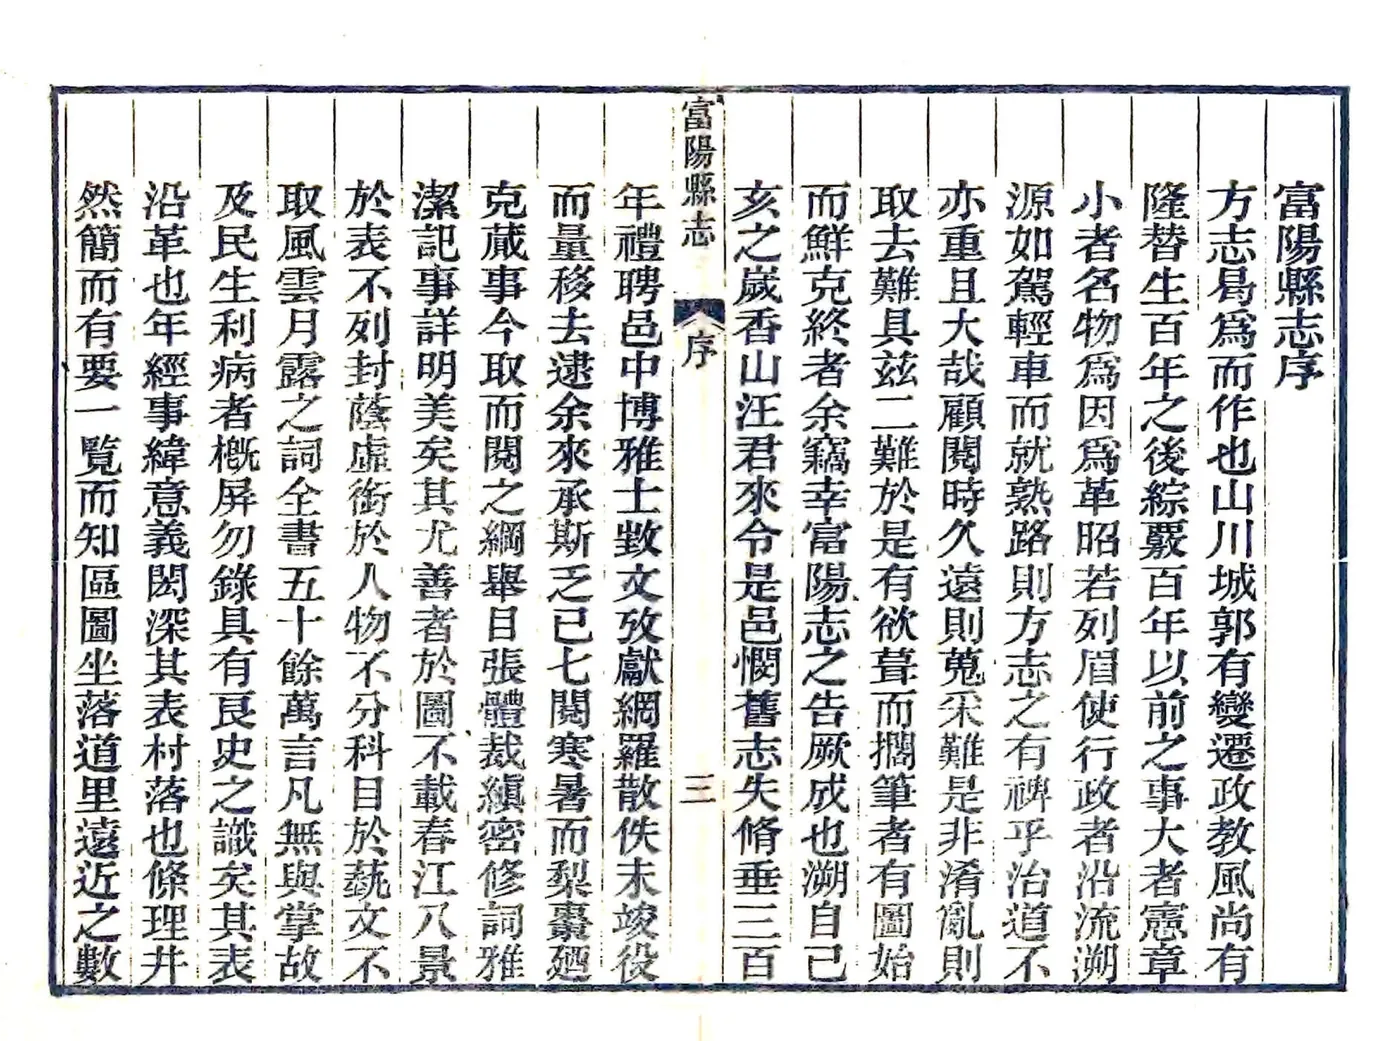 富陽縣志序
方志曷爲而作也山川城郭有變遷政教風尚有
隆替生百年之後綜覈百年以前之事大者憲章
小者名物爲因爲革昭若列眉使行政者沿流溯
源如駕輕車而就熟路則方志之有裨乎治道不
亦重且大哉顧閱時久遠則蒐采難是非淆亂則
取去難具兹二難於是有欲葺而擱筆者有圖始
而鮮克終者余竊幸富陽志之告厥成也溯自己
亥之嵗香山汪君來令是邑憫舊志失脩垂三百
富陽縣志
序
三
年禮聘邑中博雅士數文攷獻網羅散佚未竣役
而量移去逮余來承斯乏已七閱寒暑而梨棗廼
克蕆事今取而閱之綱舉目張體裁縝密修詞雅
潔記事詳明美矣其尤善者於圖不載春江八景
於表不列封蔭虛銜於人物不分科目於藝文不
取風雲月露之詞全書五十餘萬言凡無與掌故
及民生利病者概屏勿錄具有良史之識矣其表
沿革也年經事緯意義閎深其表村落也條理井
然簡而有要一覽而知區圖坐落道里遠近之數